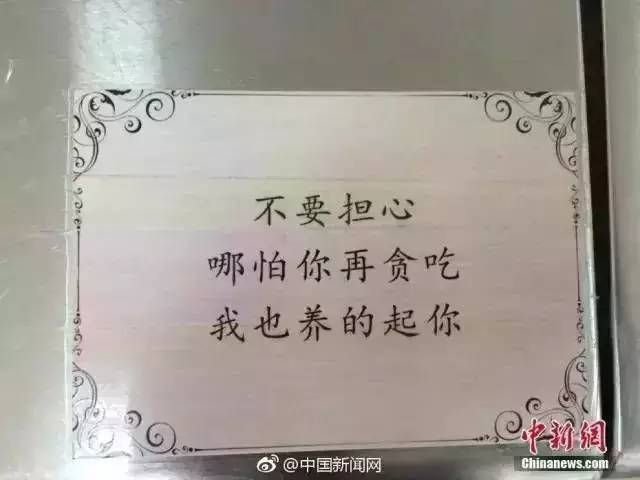 不要担心
哪怕你再贪吃
我也养的起你
@中国新闻网
中新網
Chinanews.com